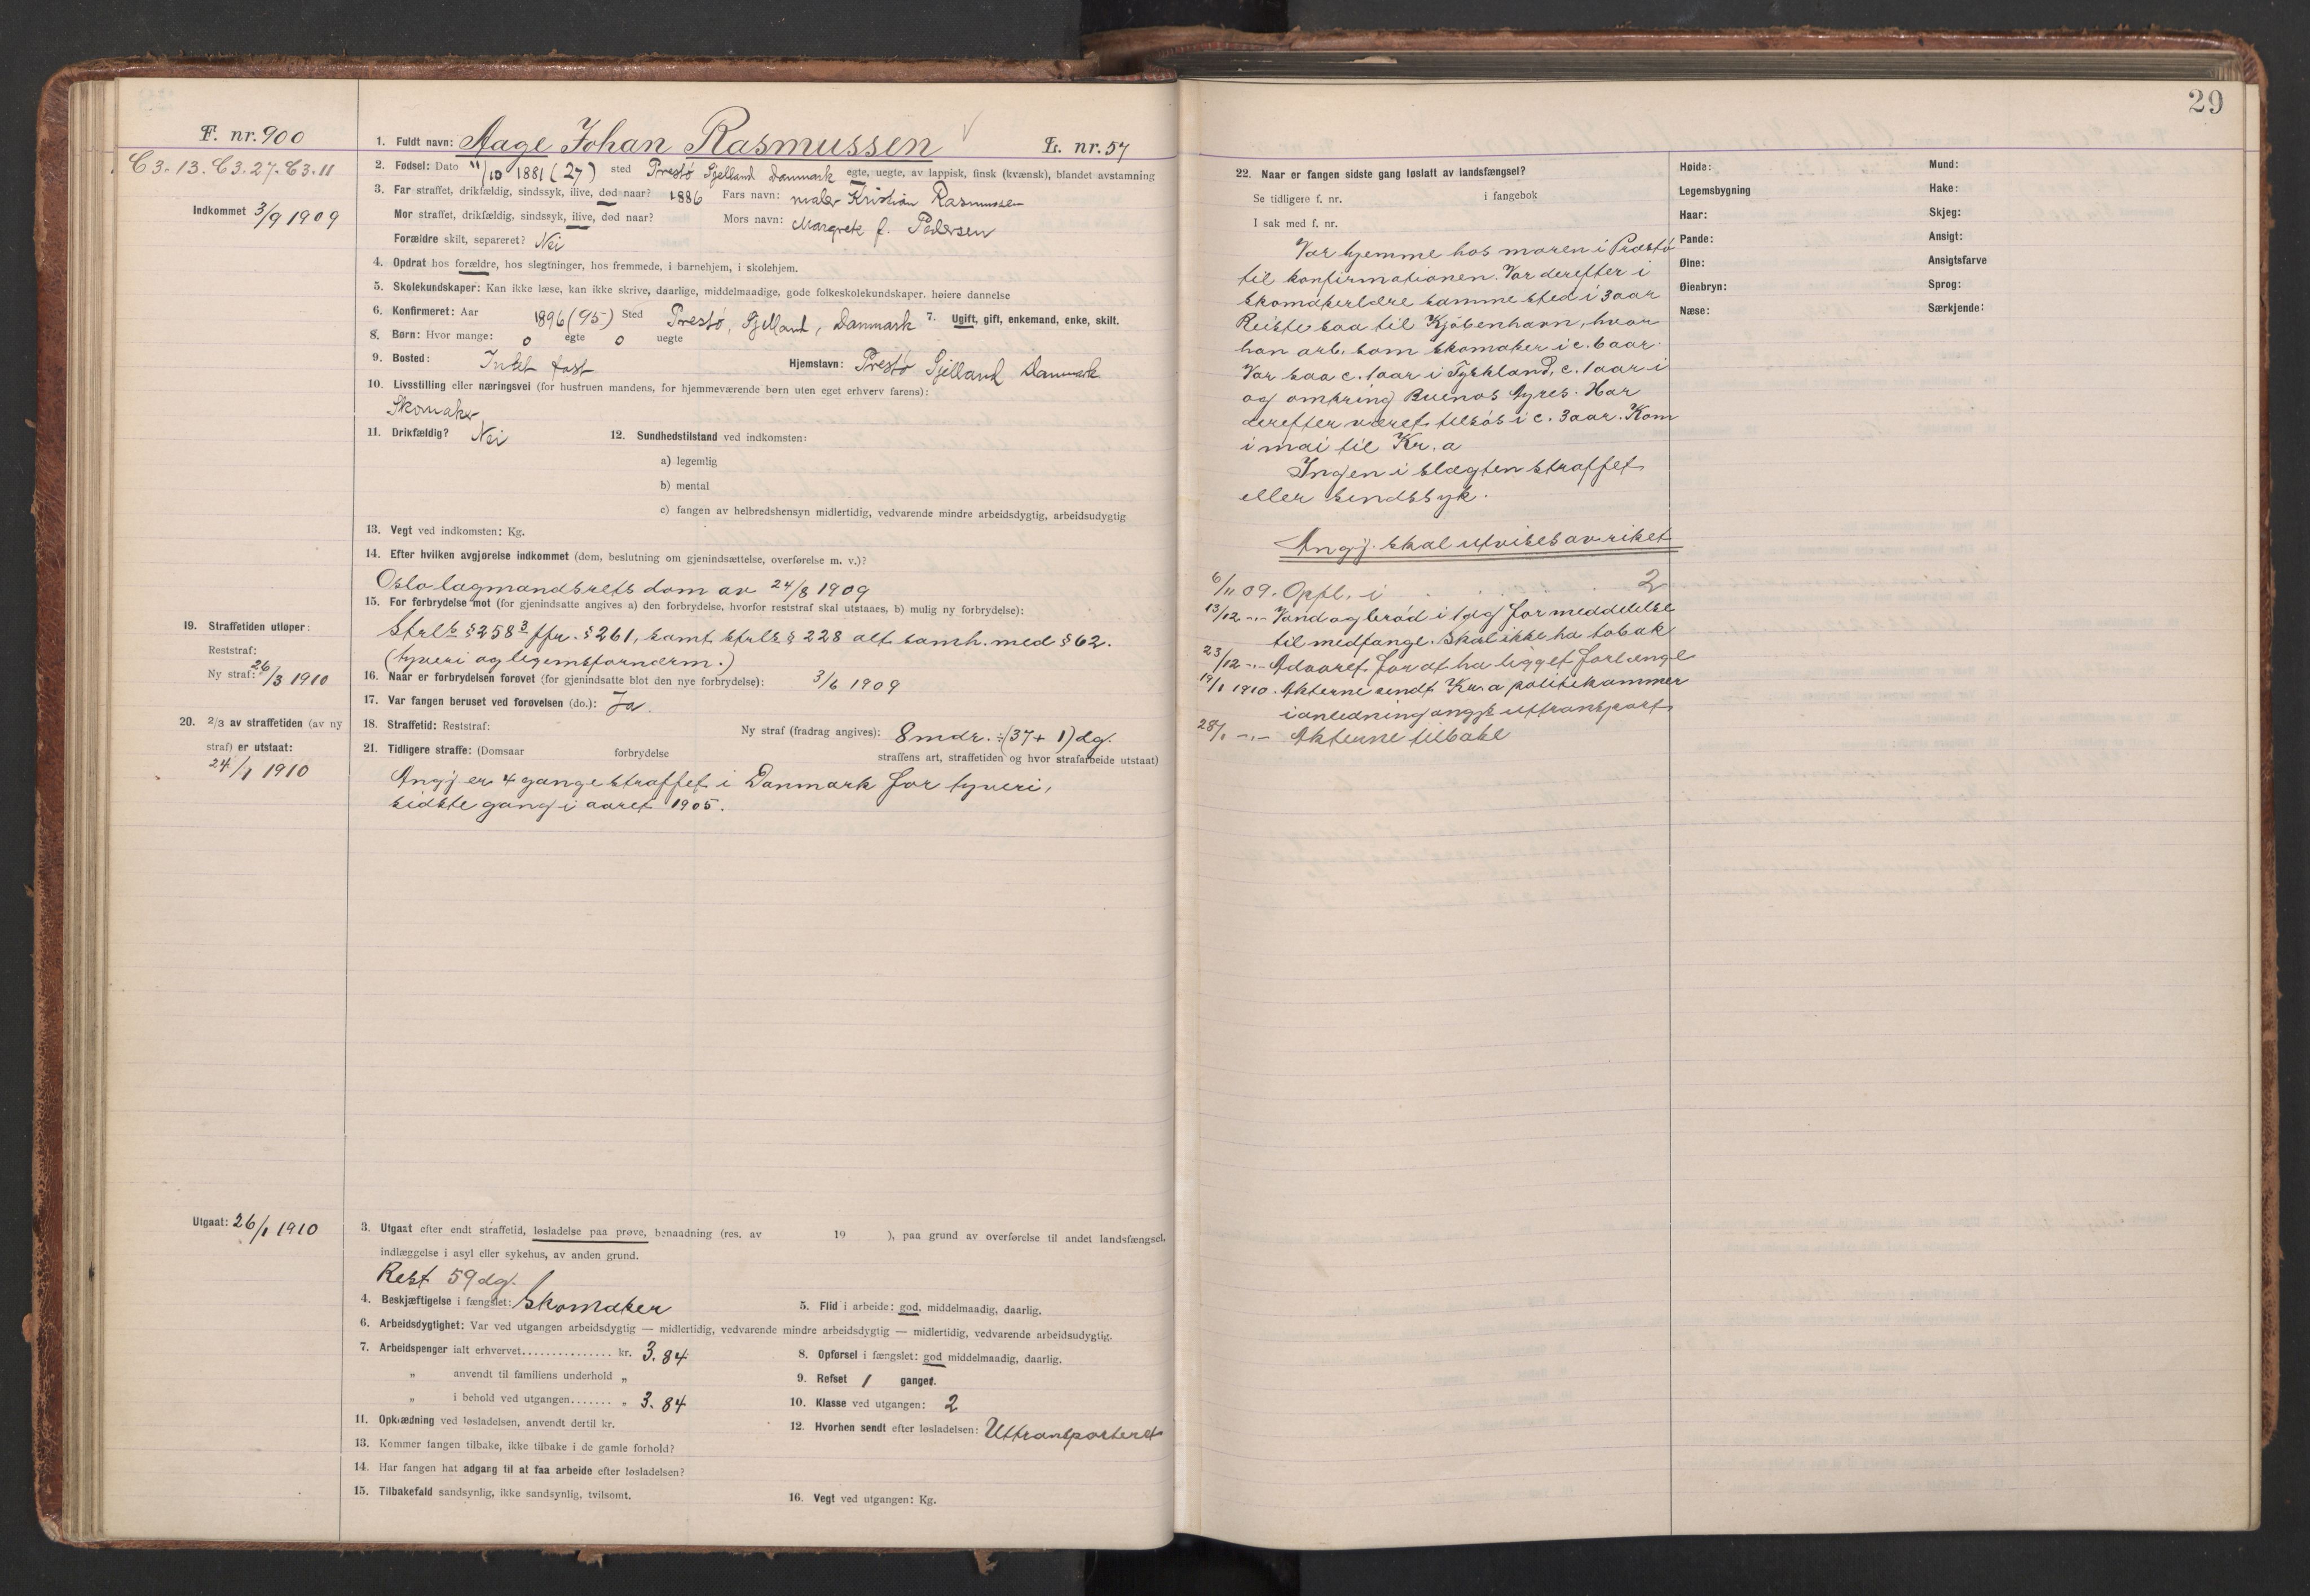 F. nr. 900
C3. 13. C3. 27. C3. 11
Indkommet 3/9 1909
19. Straffetiden utløper:
Reststraf:
Ny straf: 26/3 1910
20. 2/3 av straffetiden (av ny
straf) er utstaat:
24/1 1910
Utgaat: 26/1 1910
1. Fuldt navn: Aage Johan Rasmussen L. nr. 57
2. Fødsel: Dato 11/10 1881 (27) sted Prestø Sjelland Danmark egte, uegte, av lappisk, finsk (kvænsk), blandet avstamning
3. Far straffet, drikfældig, sindssyk, ilive, død naar? 1886 Fars navn: maler Kristian Rasmussen
Mor straffet, drikfældig, sindssyk, ilive, død naar? Mors navn: Margrete f. Pedersen
Forældre skilt, separeret? Nei
4. Opdrat hos forældre, hos slegtninger, hos fremmede, i barnehjem, i skolehjem.
5. Skolekundskaper: Kan ikke læse, kan ikke skrive, daarlige, middelmaadige, gode folkeskolekundskaper. høiere dannelse
6. Konfirmeret: Aar 1896 (95) Sted Prestø, Sjelland, Danmark 7. Ugift, gift, enkemand, enke, skilt.
8. Børn: Hvor mange: 0 egte 0 uegte
9. Bosted: Intet fast Hjemstavn: Prestø Sjelland Danmark
10. Livsstilling eller næringsvei (for hustruen mandens, for hjemmeværende børn uten eget erhverv farens):
Skomaker
11. Drikfældig? Nei 12. Sundhedstilstand ved indkomsten:
a) legemlig
b) mental
c) fangen av helbredshensyn midlertidig, vedvarende mindre arbeidsdygtig, arbeidsudygtig
13. Vegt ved indkomsten: Kg.
14. Efter hvilken avgjørelse indkommet (dom, beslutning om gjenindsættelse, overførelse m. v.)?
Oslo lagmandsrets dom av 24/8 1909
15. For forbrydelse mot (for gjenindsatte angives a) den forbrydelse, hvorfor reststraf skal utstaaes, b) mulig ny forbrydelse):
Strl's § 258³ jfr. § 261, samt strl's § 228 alt samh. med § 62.
(tyveri og legemsfornærm.)
16. Naar er forbrydelsen forøvet (for gjenindsatte blot den nye forbrydelse): 3/6 1909
17. Var fangen beruset ved forøvelsen (do.): Ja.
18. Straffetid: Reststraf: Ny straf (fradrag angives): 8 mdr. ÷ (37 + 1) dg.
21. Tidligere straffe: (Domsaar forbrydelse straffens art, straffetiden og hvor strafarbeide utstaat)
Angj er 4 gange straffet i Danmark for tyveri,
sidste gang i aaret 1905.
3. Utgaat efter endt straffetid, løsladelse paa prøve, benaadning (res. av 19 ), paa grund av overførelse til andet landsfængsel.
indlæggelse i asyl eller sykehus, av anden grund.
Rest 59 dg.
4. Beskjæftigelse i fængslet: Skomaker 5. Flid i arbeide: god, middelmaadig, daarlig.
6. Arbeidsdygtighet: Var ved utgangen arbeidsdygtig — midlertidig, vedvarende mindre arbeidsdygtig — midlertidig, vedvarende arbeidsudygtig.
7. Arbeidspenger ialt erhvervet............... kr. 3.84 8. Opførsel i fængslet: god middelmaadig, daarlig.
„ anvendt til familiens underhold „ 9. Refset 1 ganger.
„ i behold ved utgangen....... „ 3.84 10. Klasse ved utgangen: 2
11. Opklædning ved løsladelsen, anvendt dertil kr. 12. Hvorhen sendt efter løsladelsen: Uttransporteret
13. Kommer fangen tilbake, ikke tilbake i de gamle forhold?
14. Har fangen hat adgang til at faa arbeide efter løsladelsen?
15. Tilbakefald sandsynlig, ikke sandsynlig, tvilsomt. 16. Vegt ved utgangen: Kg.
29
22. Naar er fangen sidste gang løslatt av landsfængsel?
Se tidligere f. nr. i fangebok
I sak med f. nr.
Var hjemme hos moren i Præstø
til konfirmationen. Var derefter i
skomakerlære samme sted i 3 aar
Reiste saa til Kjøbenhavn, hvor
han arb. som skomaker i c. 6 aar.
Var saa c. 1 aar i Tyskland, c. 1 aar i
og omkring Buenos Ayres. Har
derefter været tilsøs i c. 3 aar. Kom
i mai til Kr.a
Ingen i slægten straffet
eller sindssyk.
Angj. skal utvises av riket
6/11 09. Opfl. i 2
13/12 -"- Vand og brød i 1 dg for meddelelse
til medfange. Skal ikke ha tobak
23/12 -"- Advaret for at ha ligget forlænge
19/1 1910. Akterne sendt Kr.a politikammer
i anledning angj's uttransport
28/1 -"- Akterne tilbake
Høide: Mund:
Legemsbygning Hake:
Haar: Skjeg:
Pande: Ansigt:
Øine: Ansigtsfarve
Øienbryn: Sprog:
Næse: Særkjende: